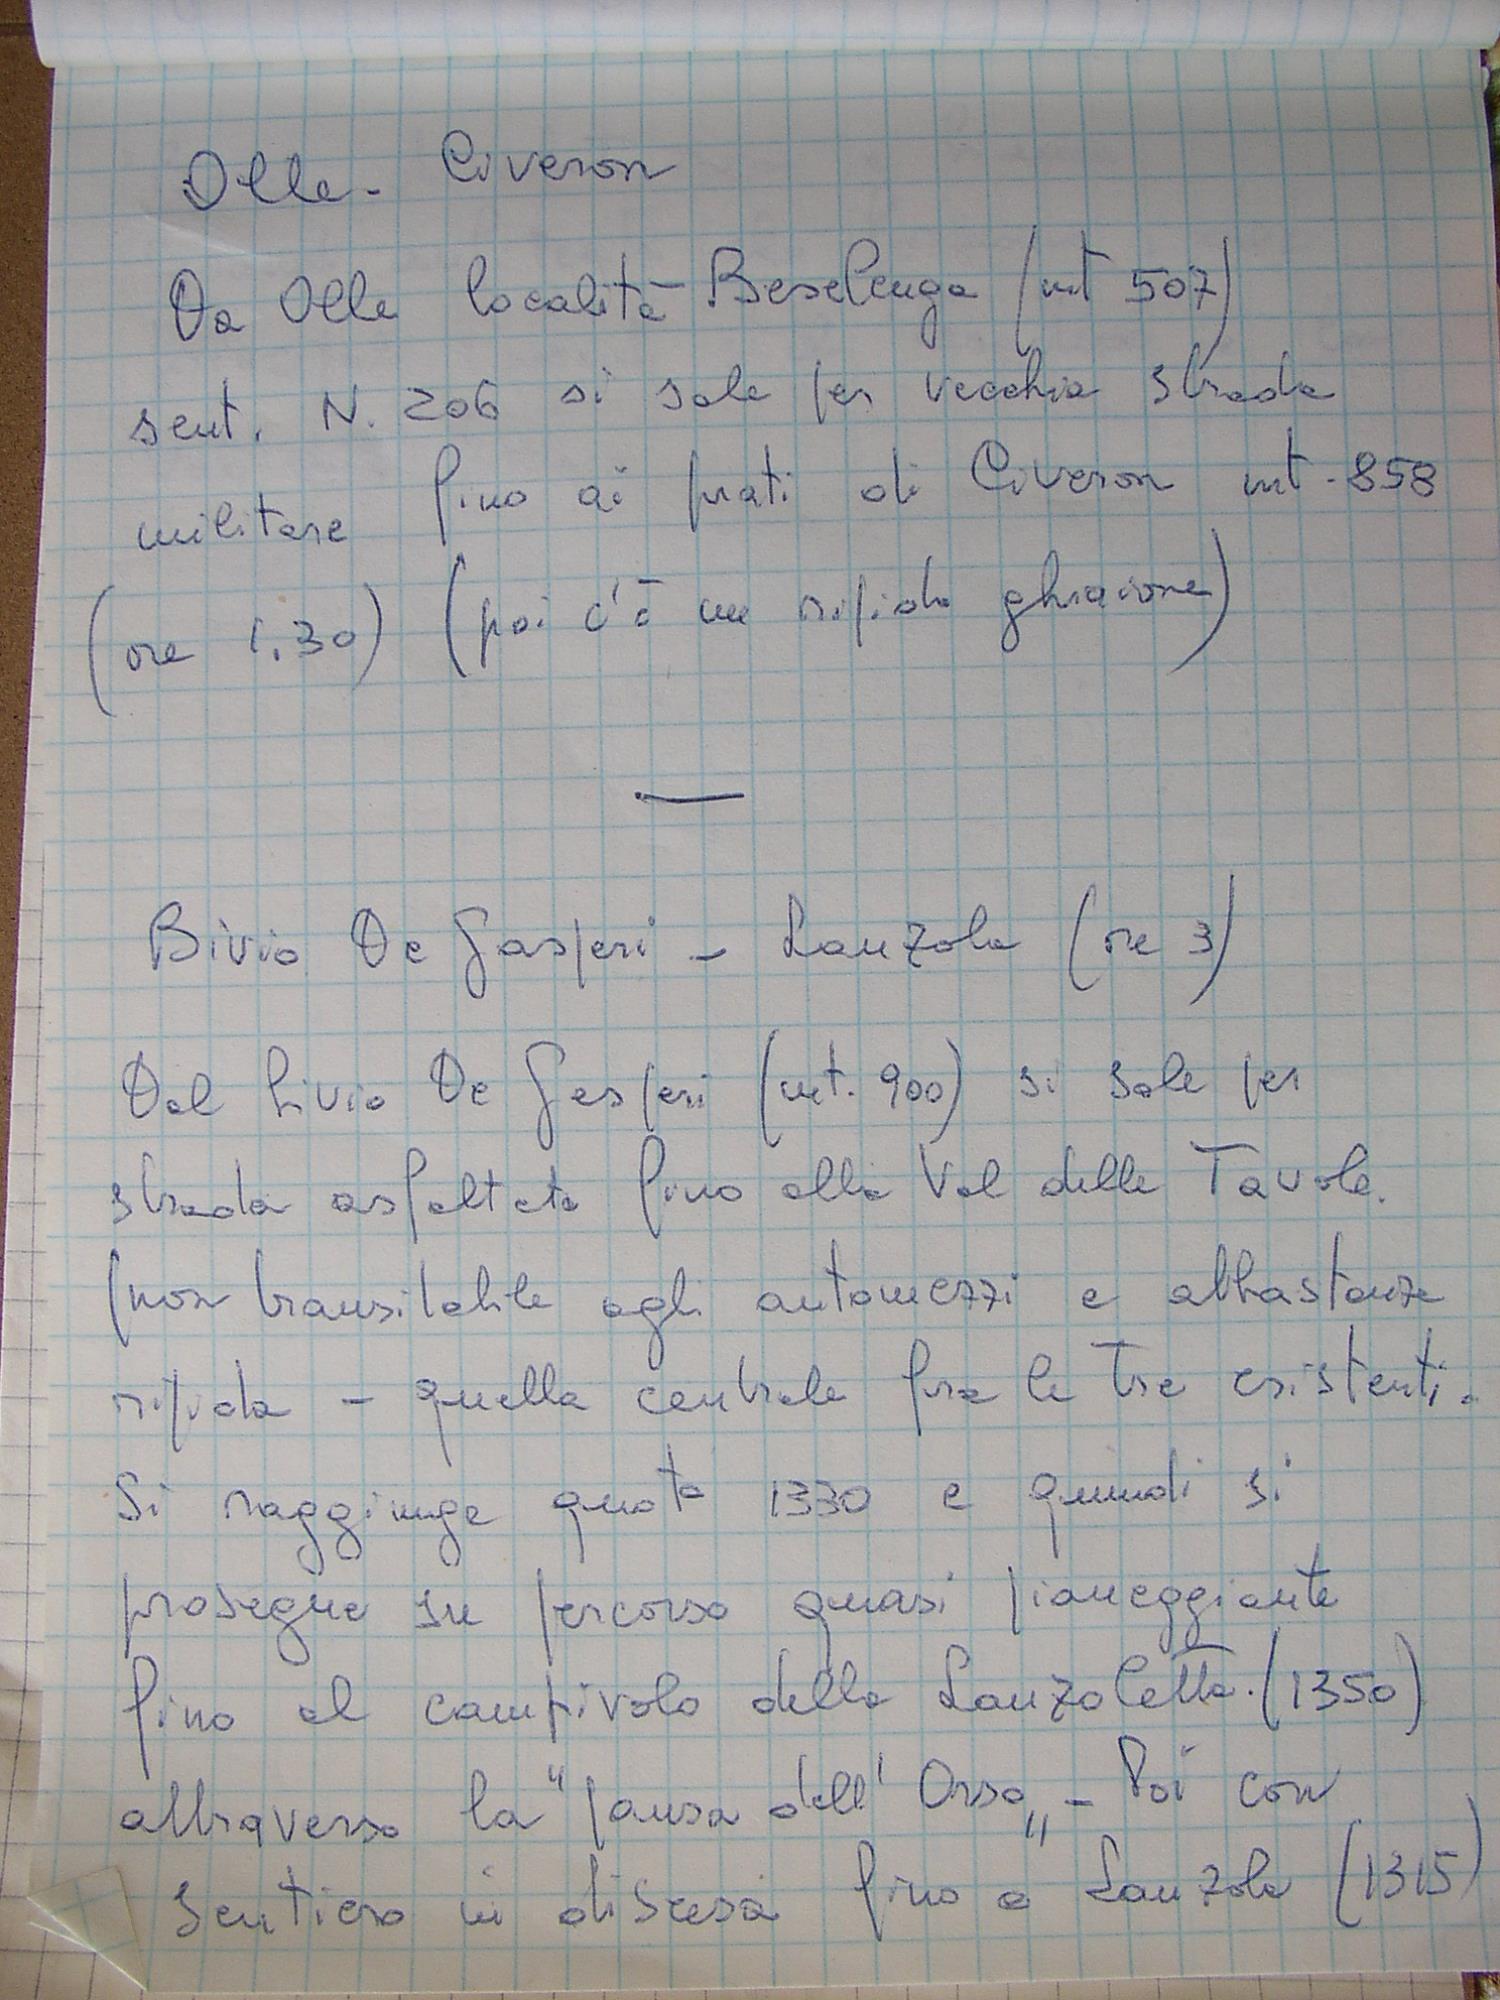 Olle - Civeron
Da Olle località Beselenga (mt 507)
sent. N. 206 si sale per vecchia strada
militare fino ai prati di Civeron mt. 858
(ore 1.30) (poi c'è un ripido ghiaione)
—
Bivio De Gasperi - Lanzola (ore 3)
Dal bivio De Gasperi (mt. 900) si sale per
strada asfaltata fino alla Val delle Tavole.
(non transitabile agli automezzi e abbastanza
ripida - quella centrale fra le tre esistenti.
Si raggiunge quota 1330 e quindi si
prosegue su percorso quasi pianeggiante
fino al campivolo della Lanzoletta. (1350)
attraverso la "pausa dell'Orso" - Poi con
sentiero in discesa fino a Lanzola (1315)